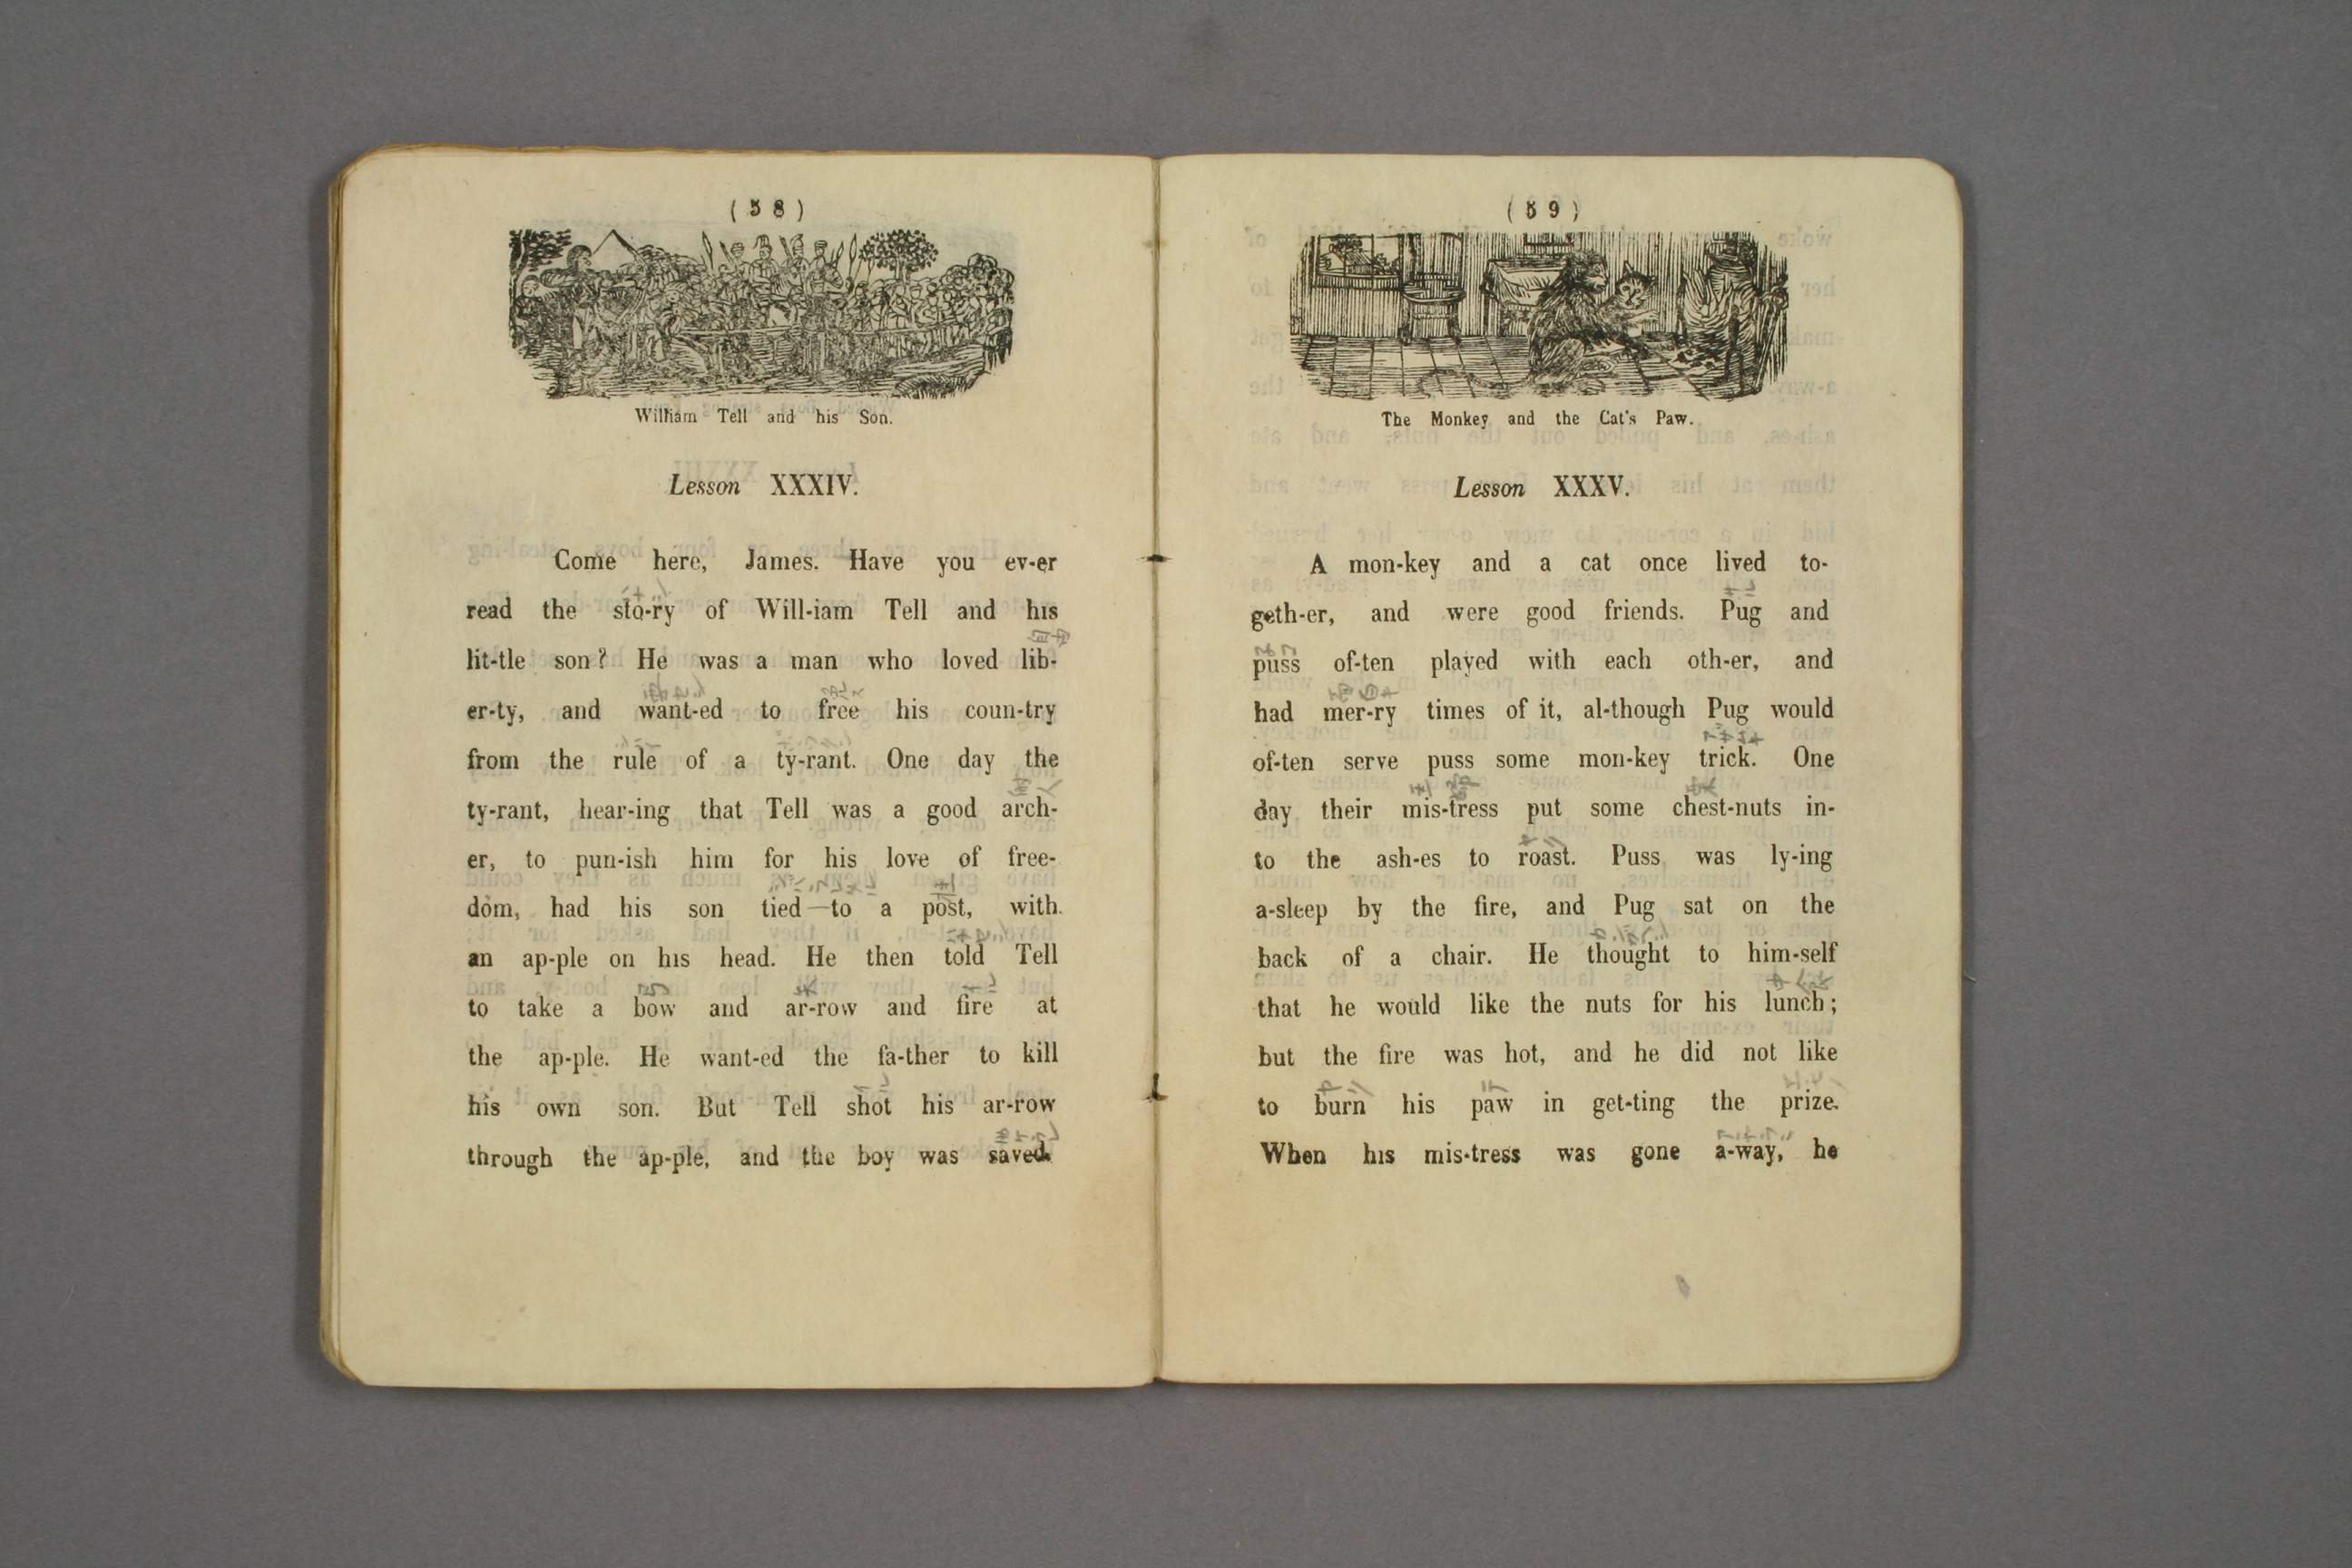 ( 5 8 )
William Tell and his Son.
Lesson XXXIV.
Come here, James. Have you ev-er
read the sto-ry of Will-iam Tell and his
lit-tle son? He was a man who loved lib-
er-ty, and want-ed to free his coun-try
from the rule of a ty-rant. One day the
ty-rant, hear-ing that Tell was a good arch-
er, to pun-ish him for his love of free-
dom, had his son tied to a post, with
an ap-ple on his head. He then told Tell
to take a bow and ar-row and fire at
the ap-ple. He want-ed the fa-ther to kill
his own son. But Tell shot his ar-row
through the ap-ple, and the boy was saved.
( 5 9 )
The Monkey and the Cat's Paw.
Lesson XXXV.
A mon-key and a cat once lived to-
geth-er, and were good friends. Pug and
puss of-ten played with each oth-er, and
had mer-ry times of it, al-though Pug would
of-ten serve puss some mon-key trick. One
day their mis-tress put some chest-nuts in-
to the ash-es to roast. Puss was ly-ing
a-sleep by the fire, and Pug sat on the
back of a chair. He thought to him-self
that he would like the nuts for his lunch;
but the fire was hot, and he did not like
to burn his paw in get-ting the prize.
When his mis-tress was gone a-way, he